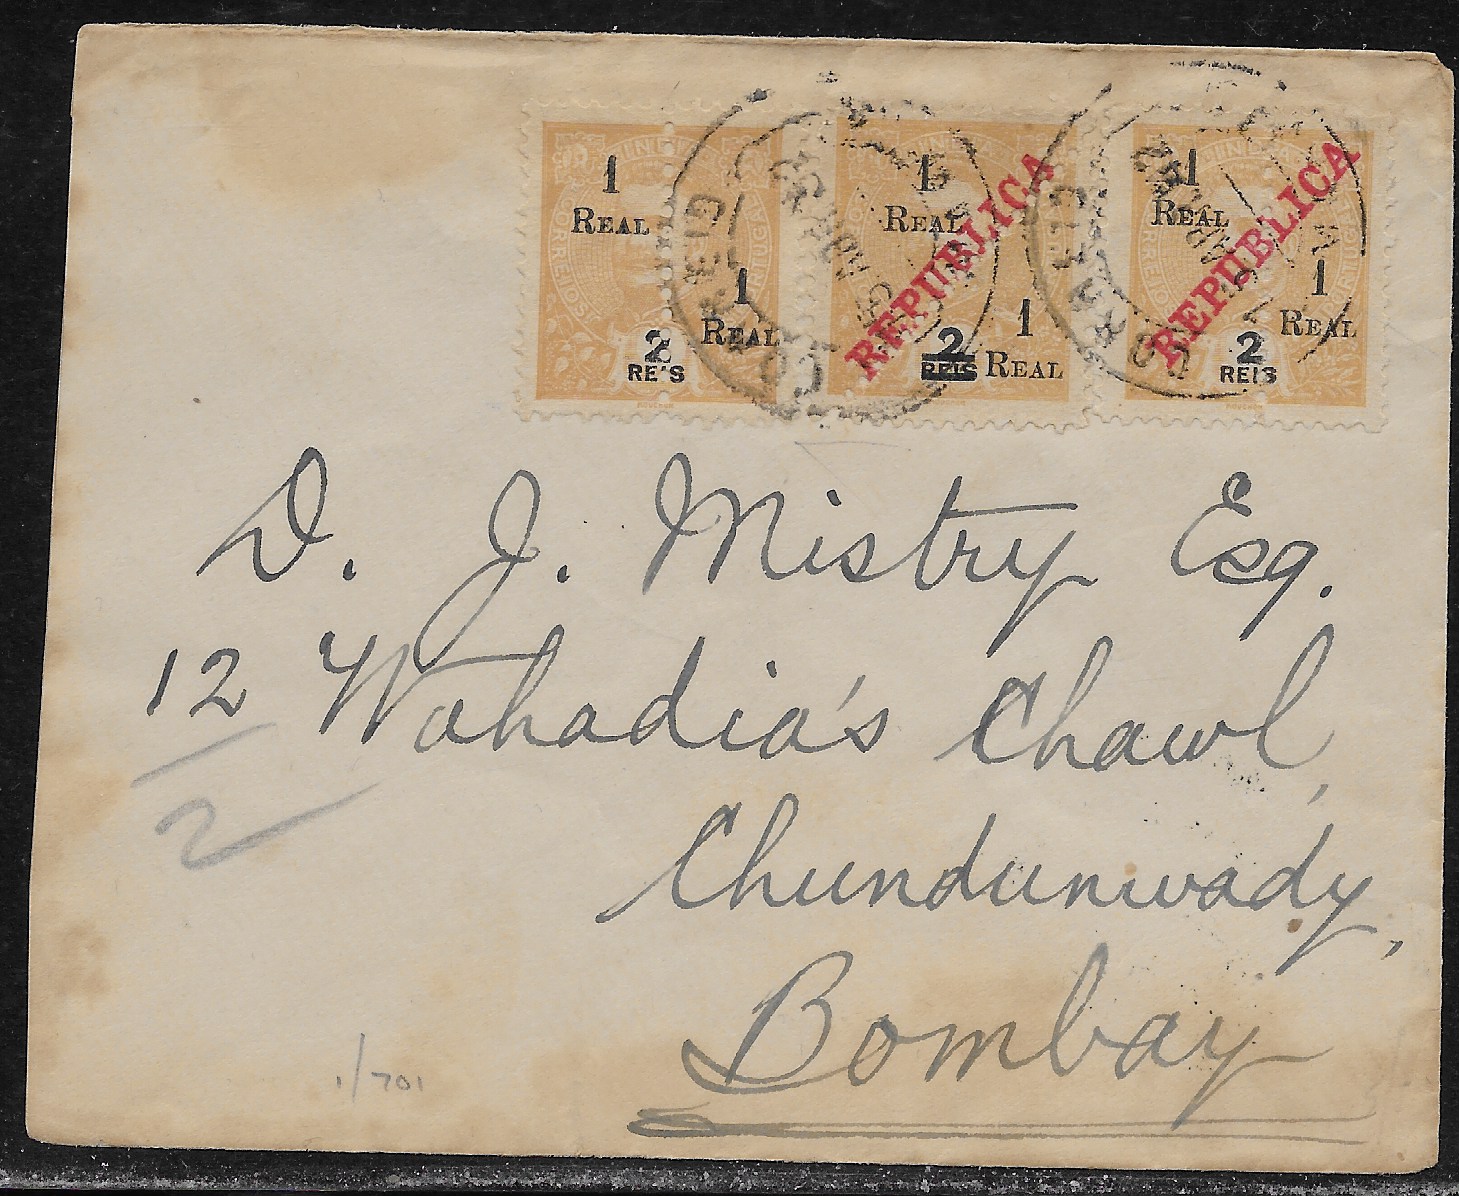 1 REAL 1 REAL 2 REIS
1 REAL REPUBLICA 2 REIS 1 REAL
1 REAL REPUBLICA 1 REAL 2 REIS
CORREIO
D. J. Mistry Esq.
12 Wahadia's Chawl,
2
Chundunwady,
Bombay
1/701